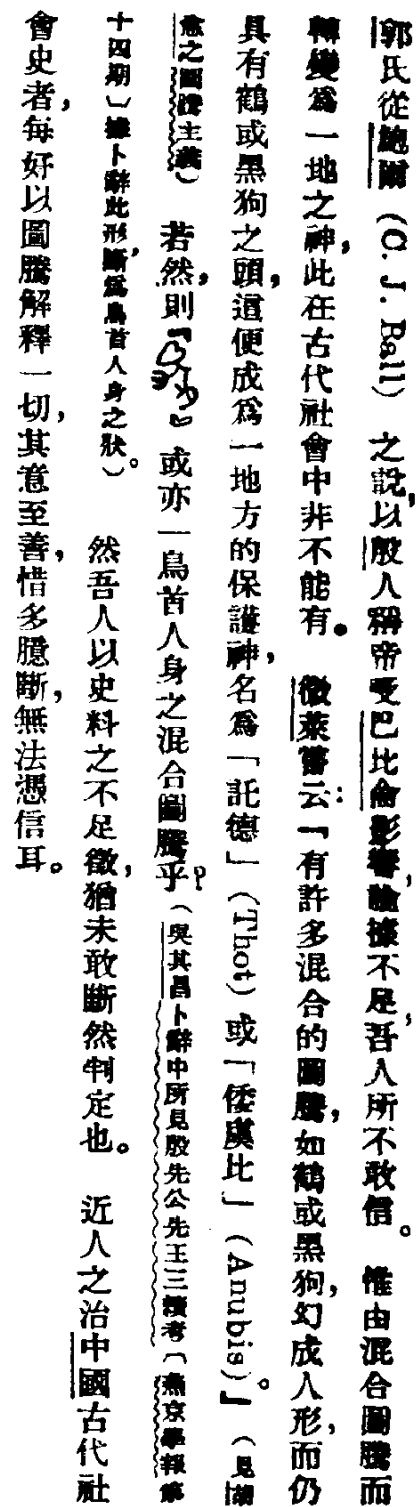 郭氏從鮑爾（C. J. Ball）之說，以殷人稱帝受巴比倫影響，論據不足，吾人所不敢信。惟由混合圖騰而
轉變爲一地之神，此在古代社會中非不能有。徵萊嘗云：「有許多混合的圖騰，如鶴或黑狗，幻成人形，而仍
具有鶴或黑狗之頭，這便成爲一地方的保護神，名爲「託德」（Thot）或「倭虞比」（Anubis）。』（見胡
愈之圖騰主義）若然，則『』或亦一鳥首人身之混合圖騰乎？（吳其昌卜辭中所見殷先公先王三續考〔燕京學報第
十四期〕據卜辭此形，斷爲鳥首人身之狀）。然吾人以史料之不足徵，猶未敢斷然判定也。近人之治中國古代社
會史者，每好以圖騰解釋一切，其意至善，惜多臆斷，無法憑信耳。